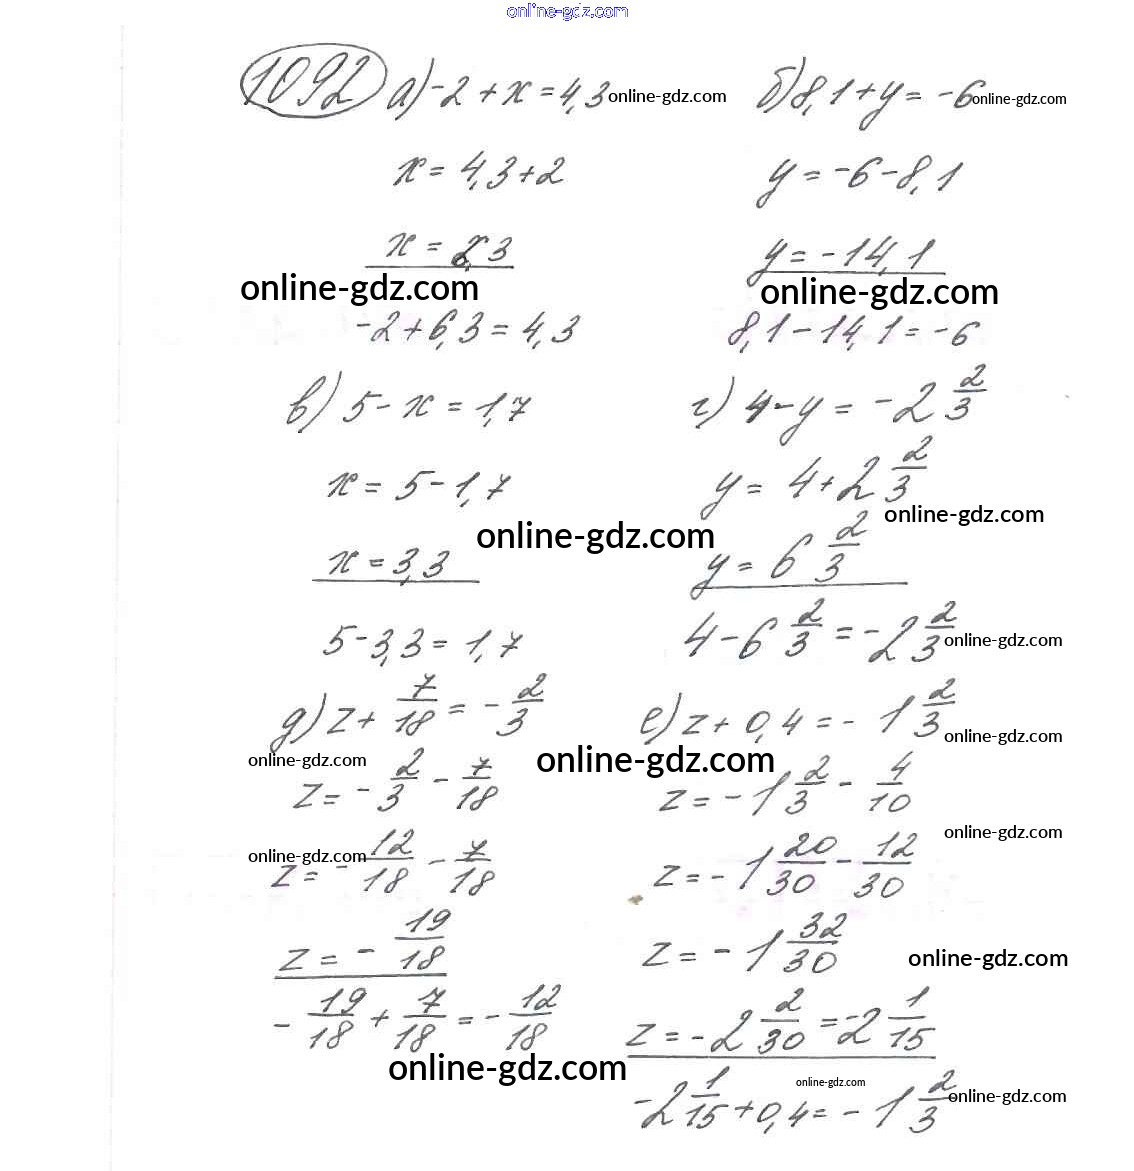 online-gdz.com
1092 а) -2 + x = 4,3 online-gdz.com б) 8,1 + y = -6 online-gdz.com
x = 4,3 + 2 y = -6 - 8,1
y = -14,1
online-gdz.com online-gdz.com
-2 + 6,3 = 4,3 8,1 - 14,1 = -6
в) 5 - x = 1,7 г) 4 - y = -2 2/3
x = 5 - 1,7 y = 4 + 2 2/3
online-gdz.com online-gdz.com
x = 3,3 y = 6 2/3
5 - 3,3 = 1,7 4 - 6 2/3 = -2 2/3 online-gdz.com
д) z + 7/18 = -2/3 е) z + 0,4 = -1 2/3 online-gdz.com
online-gdz.com online-gdz.com
z = -2/3 - 7/18 z = -1 2/3 - 4/10
online-gdz.com online-gdz.com
z = -12/18 - 7/18 z = -1 20/30 - 12/30
z = -19/18 z = -1 32/30 online-gdz.com
-19/18 + 7/18 = -12/18 z = -2 2/30 = -2 1/15
online-gdz.com online-gdz.com online-gdz.com
-2 1/15 + 0,4 = -1 2/3